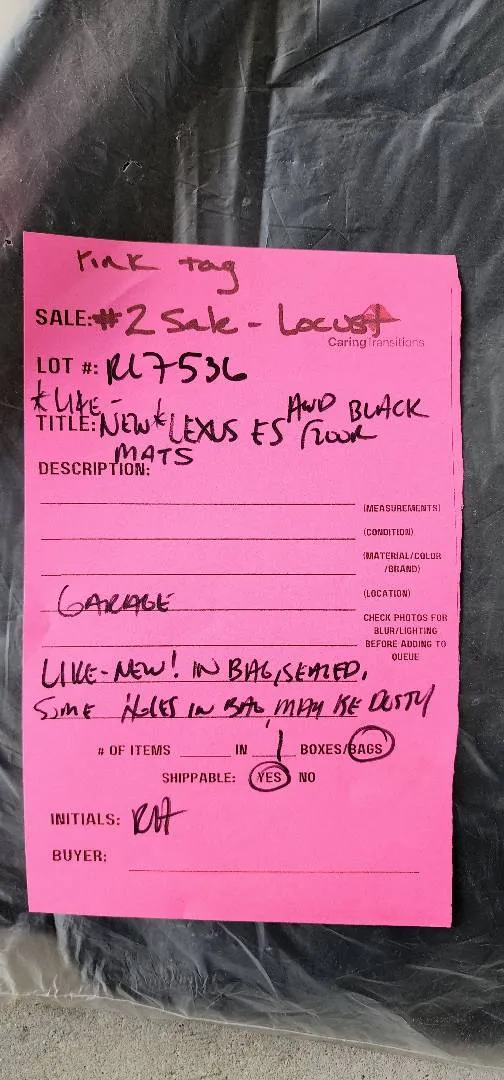 Pink tag
SALE: #2 Sale - Locust
CaringTransitions
LOT #: RL7536
*LIKE-
TITLE: NEW* LEXUS ES AWD BLACK FLOOR
MATS
DESCRIPTION:
(MEASUREMENTS)
(CONDITION)
(MATERIAL/COLOR
/BRAND)
GARAGE (LOCATION)
CHECK PHOTOS FOR
BLUR/LIGHTING
BEFORE ADDING TO
QUEUE
LIKE-NEW! IN BAG, SEALED,
SOME HOLES IN BAG, MAY BE DUSTY
# OF ITEMS ____ IN 1 BOXES/BAGS
SHIPPABLE: YES NO
INITIALS: RH
BUYER: